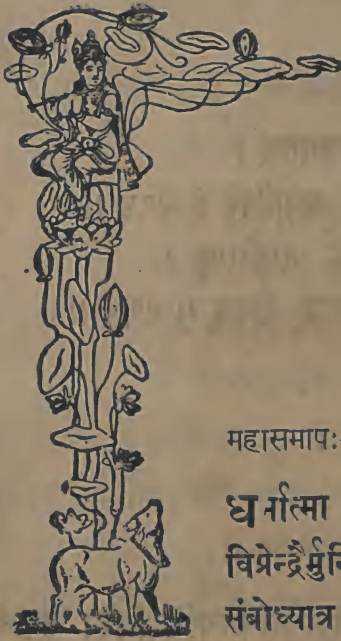 महासमाप:
धर्मात्मा
विप्रेन्द्रैर्मुनि
संबोध्यात्र